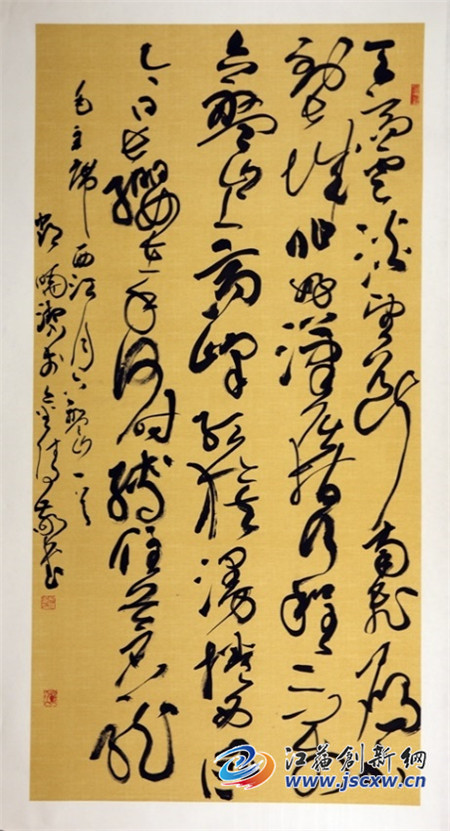 天高雲淡望断南飛雁不
到长城非好漢屈指行程二万
六盤山上高峰红旗漫捲西风
今日长缨在手何时缚住苍龙
毛主席西江月六盤山一首
江苏创新网
www.jscxw.cn